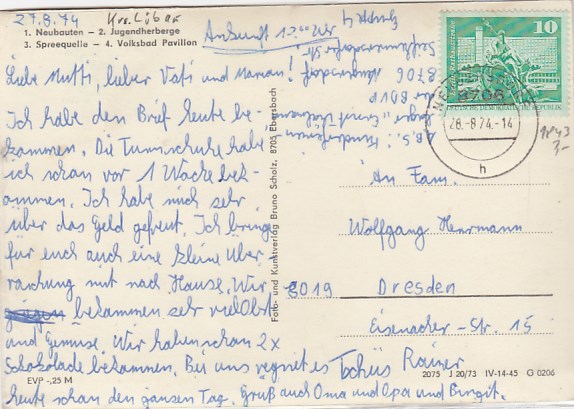 27.8.74 Krs. Löbau
1. Neubauten – 2. Jugendherberge
3. Spreequelle – 4. Volksbad Pavillon
Ankunft 17.00 Uhr
Liebe Mutti, lieber Vati und
Ich habe den Brief heute be-
kommen. Die Turnschuhe habe
ich schon vor 1 Woche bek-
ommen. Ich habe mich sehr
über das Geld gefreut. Ich bringe
für euch auch eine kleine Über
raschung mit nach Hause. Wir
bekommen sehr viel Obst
und Gemüse. Wir haben schon 2x
Schokolade bekommen. Bei uns regnet es
heute schon den ganzen Tag. Grüß auch Oma und Opa und Birgit.
Tschüs Rainer
EVP -,25 M
Foto- und Kunstverlag Bruno Scholz, 8705 Ebersbach
Lager „Ernst
der BDVP
8706
Gruppe 4
10
DEUTSCHE DEMOKRATISCHE REPUBLIK
8706
28.-8.74.-14
h
1843
3,-
An Fam.
Wolfgang Herrmann
8019 Dresden
Eisenacher-Str. 15
2075 J 20/73 IV-14-45 G 0206